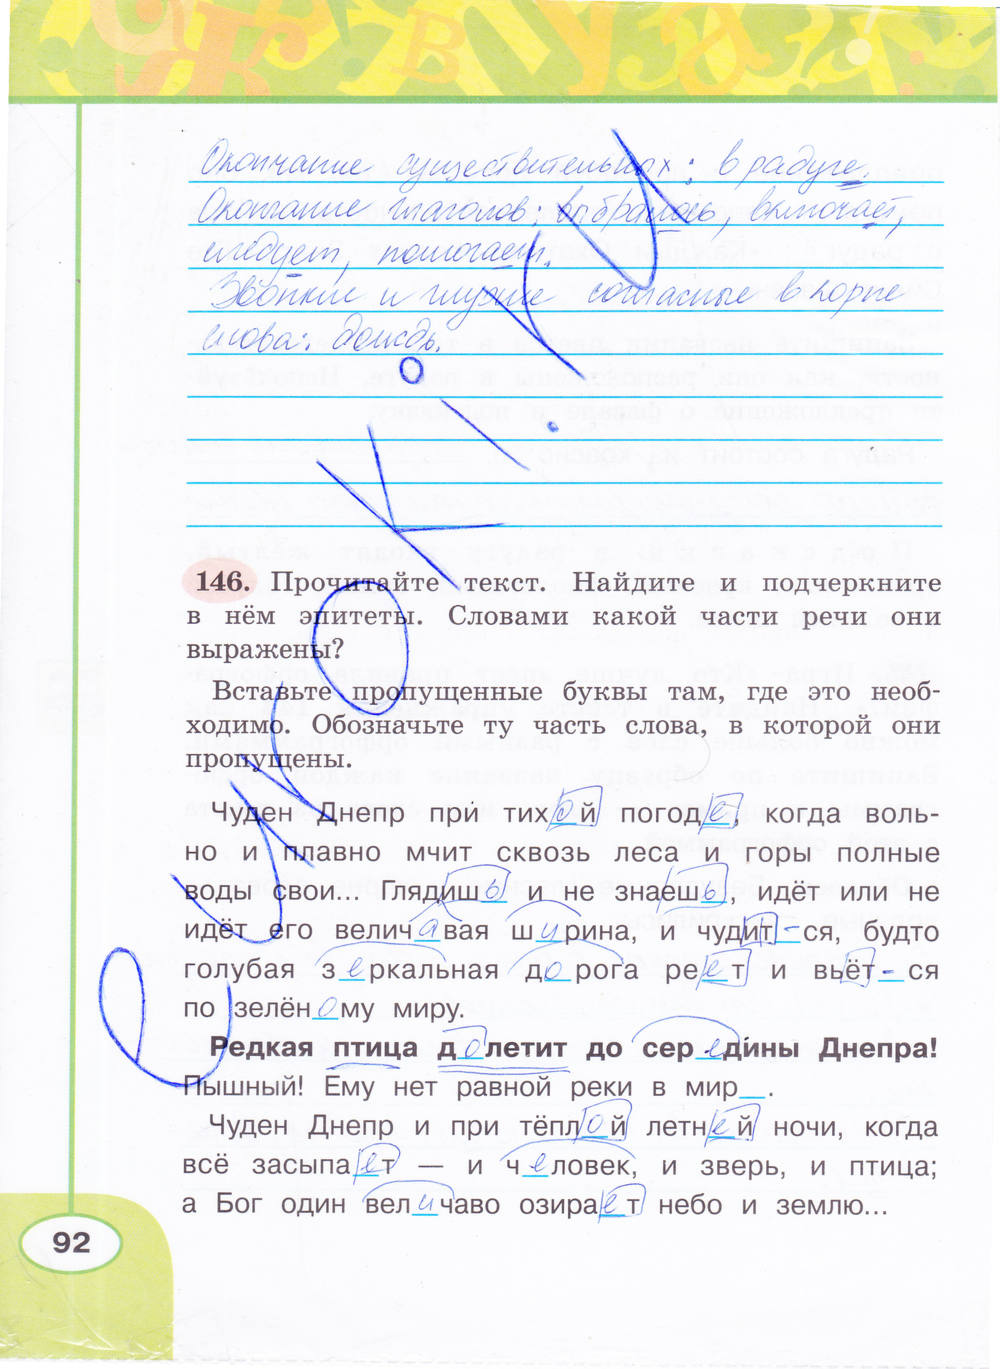 Окончание существительных: в радуге.
Окончание глаголов: выбралось, включает,
следует, помогает.
Звонкие и глухие согласные в корне
слова: дождь.
146. Прочитайте текст. Найдите и подчеркните
в нём эпитеты. Словами какой части речи они
выражены?
Вставьте пропущенные буквы там, где это необ-
ходимо. Обозначьте ту часть слова, в которой они
пропущены.
Чуден Днепр при тихой погоде, когда воль-
но и плавно мчит сквозь леса и горы полные
воды свои... Глядишь и не знаешь, идёт или не
идёт его величавая ширина, и чудит-ся, будто
голубая зеркальная дорога реет и вьёт-ся
по зелёному миру.
Редкая птица долетит до середины Днепра!
Пышный! Ему нет равной реки в мир_.
Чуден Днепр и при тёплой летней ночи, когда
всё засыпает — и человек, и зверь, и птица;
а Бог один величаво озирает небо и землю...
92